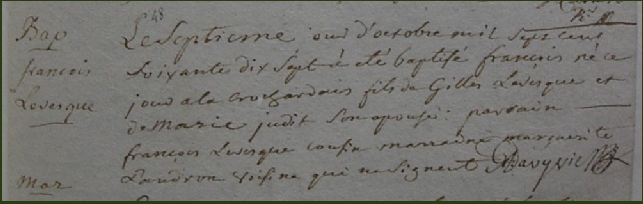 48
Bap
francois
Levesque
Le Septieme jour d'octobre mil Sept cent
Soixante dix Sept a été baptisé francois né ce
jour a la crochardais fils de Gilles Levesque et
de Marie judit Son epouse. parrain
francois Levesque cousin marraine marguerite
Landron voisine qui ne Signent
Mar